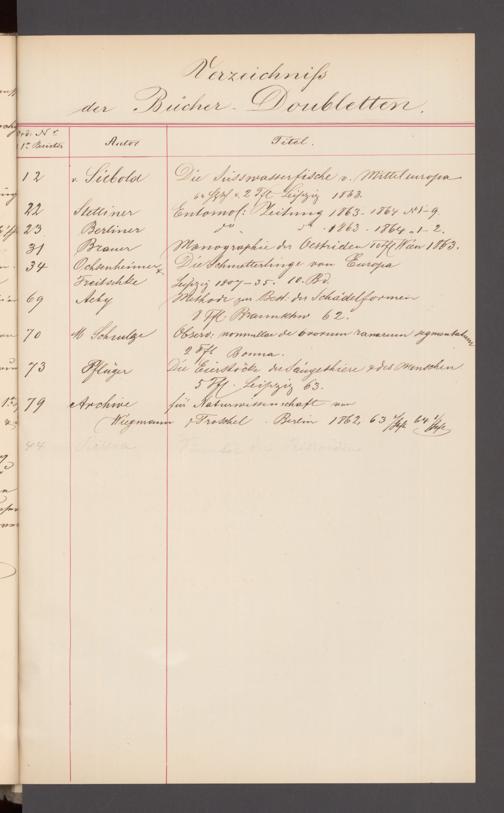 Verzeichniß
der Bücher-Doubletten.
Autor Titel.
12 v. Siebold Die Süsswasserfische v. Mitteleuropa
2 Tfl Leipzig 1863.
22 Stettiner Entomol: Zeitung 1863-1864 N 1-9.
23 Berliner do 1863. 1864 1-2.
31 Brauer Monographie der Oestriden 10 Tfl Wien 1863.
34 Ochsenheimer Die Schmetterlinge von Europa
Treitschke Leipzig 1807-35. 10. Bd.
69 Aeby Methode zur Best. der Schädelformen
8 Tfl. Braunschw 62.
70 M. Schultze Observ: nonnullae de ovorum ranarum segmentatione
2 Tfl Bonna.
73 Pflüger Die Eierstöcke der Säugethiere & des Menschen
5 Tfl. Leipzig 63.
79 Archive für Naturwissenschaft von
Wiegmann & Troschel. Berlin 1862, 63 64
44